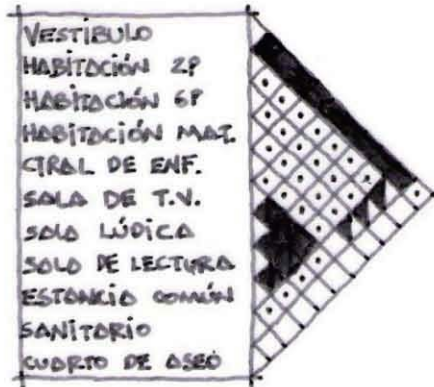 VESTÍBULO
HABITACIÓN 2P
HABITACIÓN 6P
HABITACIÓN MAT.
CTRAL DE ENF.
SALA DE T.V.
SALA LÚDICA
SALA DE LECTURA
ESTANCIA COMÚN
SANITARIO
CUARTO DE ASEO